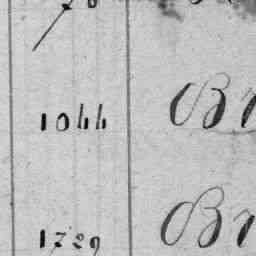 1044 Br
1729 Br